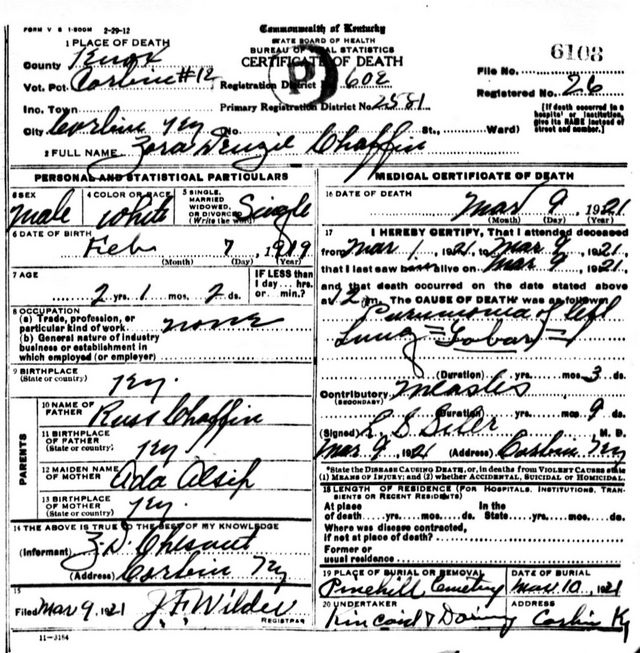 FORM V S 1-500M 2-29-12
Commonwealth of Kentucky
STATE BOARD OF HEALTH
BUREAU OF VITAL STATISTICS
CERTIFICATE OF DEATH
1 PLACE OF DEATH
County Knox
Vot. Pct. Corbin #12
Inc. Town
City Corbin Ky No. St., Ward)
Registration District 602
Primary Registration District No. 2581
P
6108
File No.
Registered No. 26
[If death occurred in a hospital or institution, give its NAME instead of street and number.]
2 FULL NAME Zora Denzil Chaffin
PERSONAL AND STATISTICAL PARTICULARS
3 SEX male
4 COLOR OR RACE white
5 SINGLE, MARRIED WIDOWED, OR DIVORCED (Write the word) Single
6 DATE OF BIRTH
Feb 7, 1919
(Month) (Day) (Year)
7 AGE
2 yrs. 1 mos. 2 ds.
IF LESS than 1 day ... hrs. or min.?
8 OCCUPATION
(a) Trade, profession, or particular kind of work. none
(b) General nature of industry business or establishment in which employed (or employer)
9 BIRTHPLACE
(State or country) Ky.
PARENTS
10 NAME OF FATHER Russ Chaffin
11 BIRTHPLACE OF FATHER (State or country) Ky
12 MAIDEN NAME OF MOTHER Ada Alsip
13 BIRTHPLACE OF MOTHER (State or country) Ky.
14 THE ABOVE IS TRUE TO THE BEST OF MY KNOWLEDGE
(Informant) Z. D. Chesnut
(Address) Corbin Ky
15
Filed Mar 9, 1921 J. F. Wilder
REGISTRAR
11-3184
MEDICAL CERTIFICATE OF DEATH
16 DATE OF DEATH
Mar 9, 1921
(Month) (Day) (Year)
17 I HEREBY CERTIFY, That I attended deceased
from Mar 1, 1921, to Mar 9, 1921,
that I last saw alive on Mar 9, 1921,
and that death occurred on the date stated above
at 12 m. The CAUSE OF DEATH was as follows
Pneumonia of left
Lung = Lobar =
(Duration) yrs. mos. 3 ds.
Contributory Measles
(SECONDARY)
(Duration) yrs. mos. 9 ds.
(Signed) M. D.
Mar 9, 1921 (Address) Corbin Ky
*State the DISEASE CAUSING DEATH, or, in deaths from VIOLENT CAUSES state (1) MEANS OF INJURY; and (2) whether ACCIDENTAL, SUICIDAL or HOMICIDAL.
18 LENGTH OF RESIDENCE (FOR HOSPITALS, INSTITUTIONS, TRANSIENTS OR RECENT RESIDENTS)
At place of death yrs. mos. ds. In the State yrs. mos. ds.
Where was disease contracted, if not at place of death?
Former or usual residence
19 PLACE OF BURIAL OR REMOVAL
Pinehill Cemetery
DATE OF BURIAL
Mar 10, 1921
20 UNDERTAKER
Kincaid &
ADDRESS
Corbin Ky